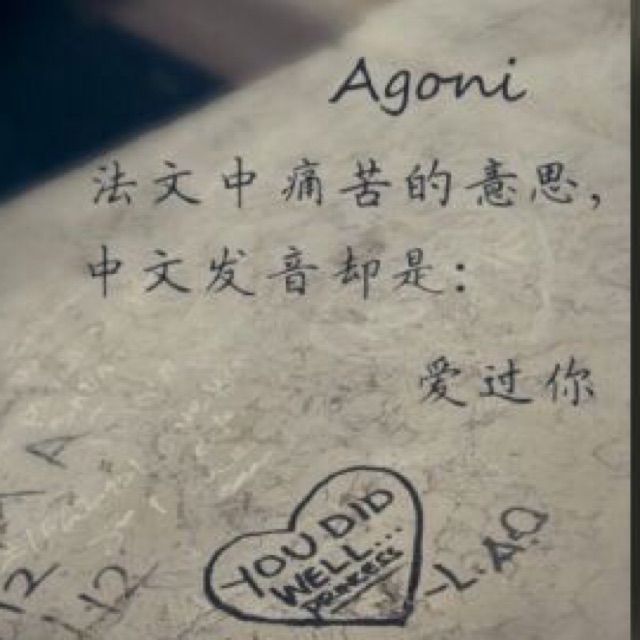 Agoni
法文中痛苦的意思，
中文发音却是：
爱过你
YOU DID
WELL...
PRINCESS
-L.AO
12
12